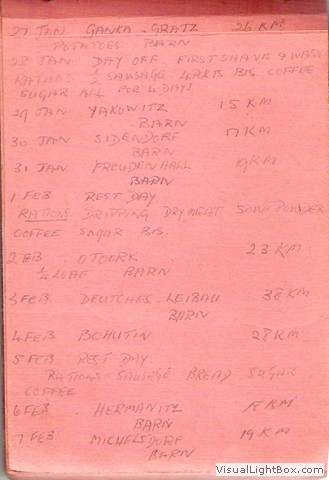 27 JAN GANKA - GRATZ 26 KM
POTATOES BARN
28 JAN DAY OFF FIRST SHAVE & WASH
RATIONS ½ SAUSAGE 4 PKTS BIS COFFEE
SUGAR ALL FOR 4 DAYS
29 JAN YAKOWITZ 15 KM
BARN
30 JAN SIDENDORF 17 KM
BARN
31 JAN FREUDENHALL 19 KM
BARN
1 FEB REST DAY
RATIONS DRIPPING DRY MEAT SOUP POWDER
COFFEE SUGAR BIS.
2 FEB 23 KM
¼ LOAF BARN
3 FEB DEUTCHES - LEIBAU 38 KM
BARN
4 FEB BOHUTIN 28 KM
5 FEB REST DAY
RATIONS - SAUSAGE BREAD SUGAR
COFFEE
6 FEB HERMANITZ KM
BARN
7 FEB MICHELSDORF 19 KM
BARN
VisualLightBox.com